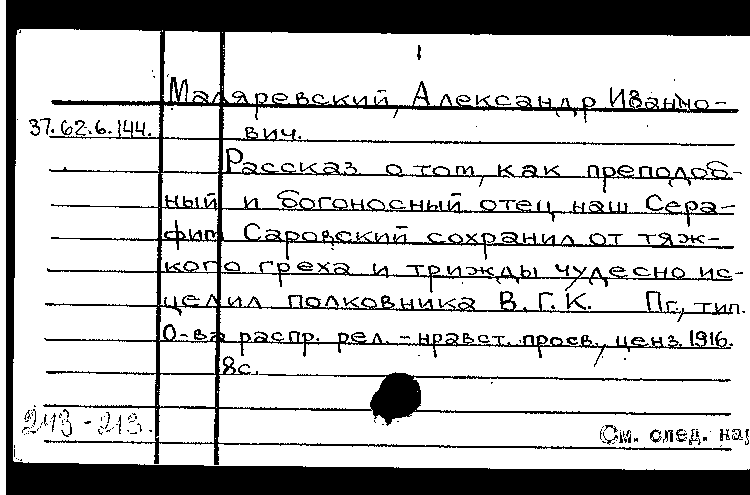 1
Маляревский, Александр Ивано-
37.62.6.144. вич.
Рассказ о том, как преподоб-
ный и богоносный отец наш Сера-
фим Саровский сохранил от тяж-
кого греха и трижды чудесно ис-
целил полковника В.Г.К. Пг., тип.
О-ва распр. рел.-нравст. просв., ценз. 1916.
8с.
243-213.
См. след.